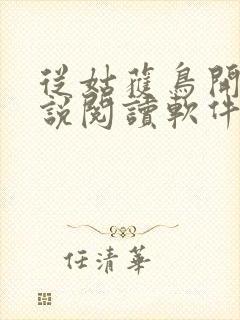 從姑蘇鳥開
說閱讀軟件
任清華